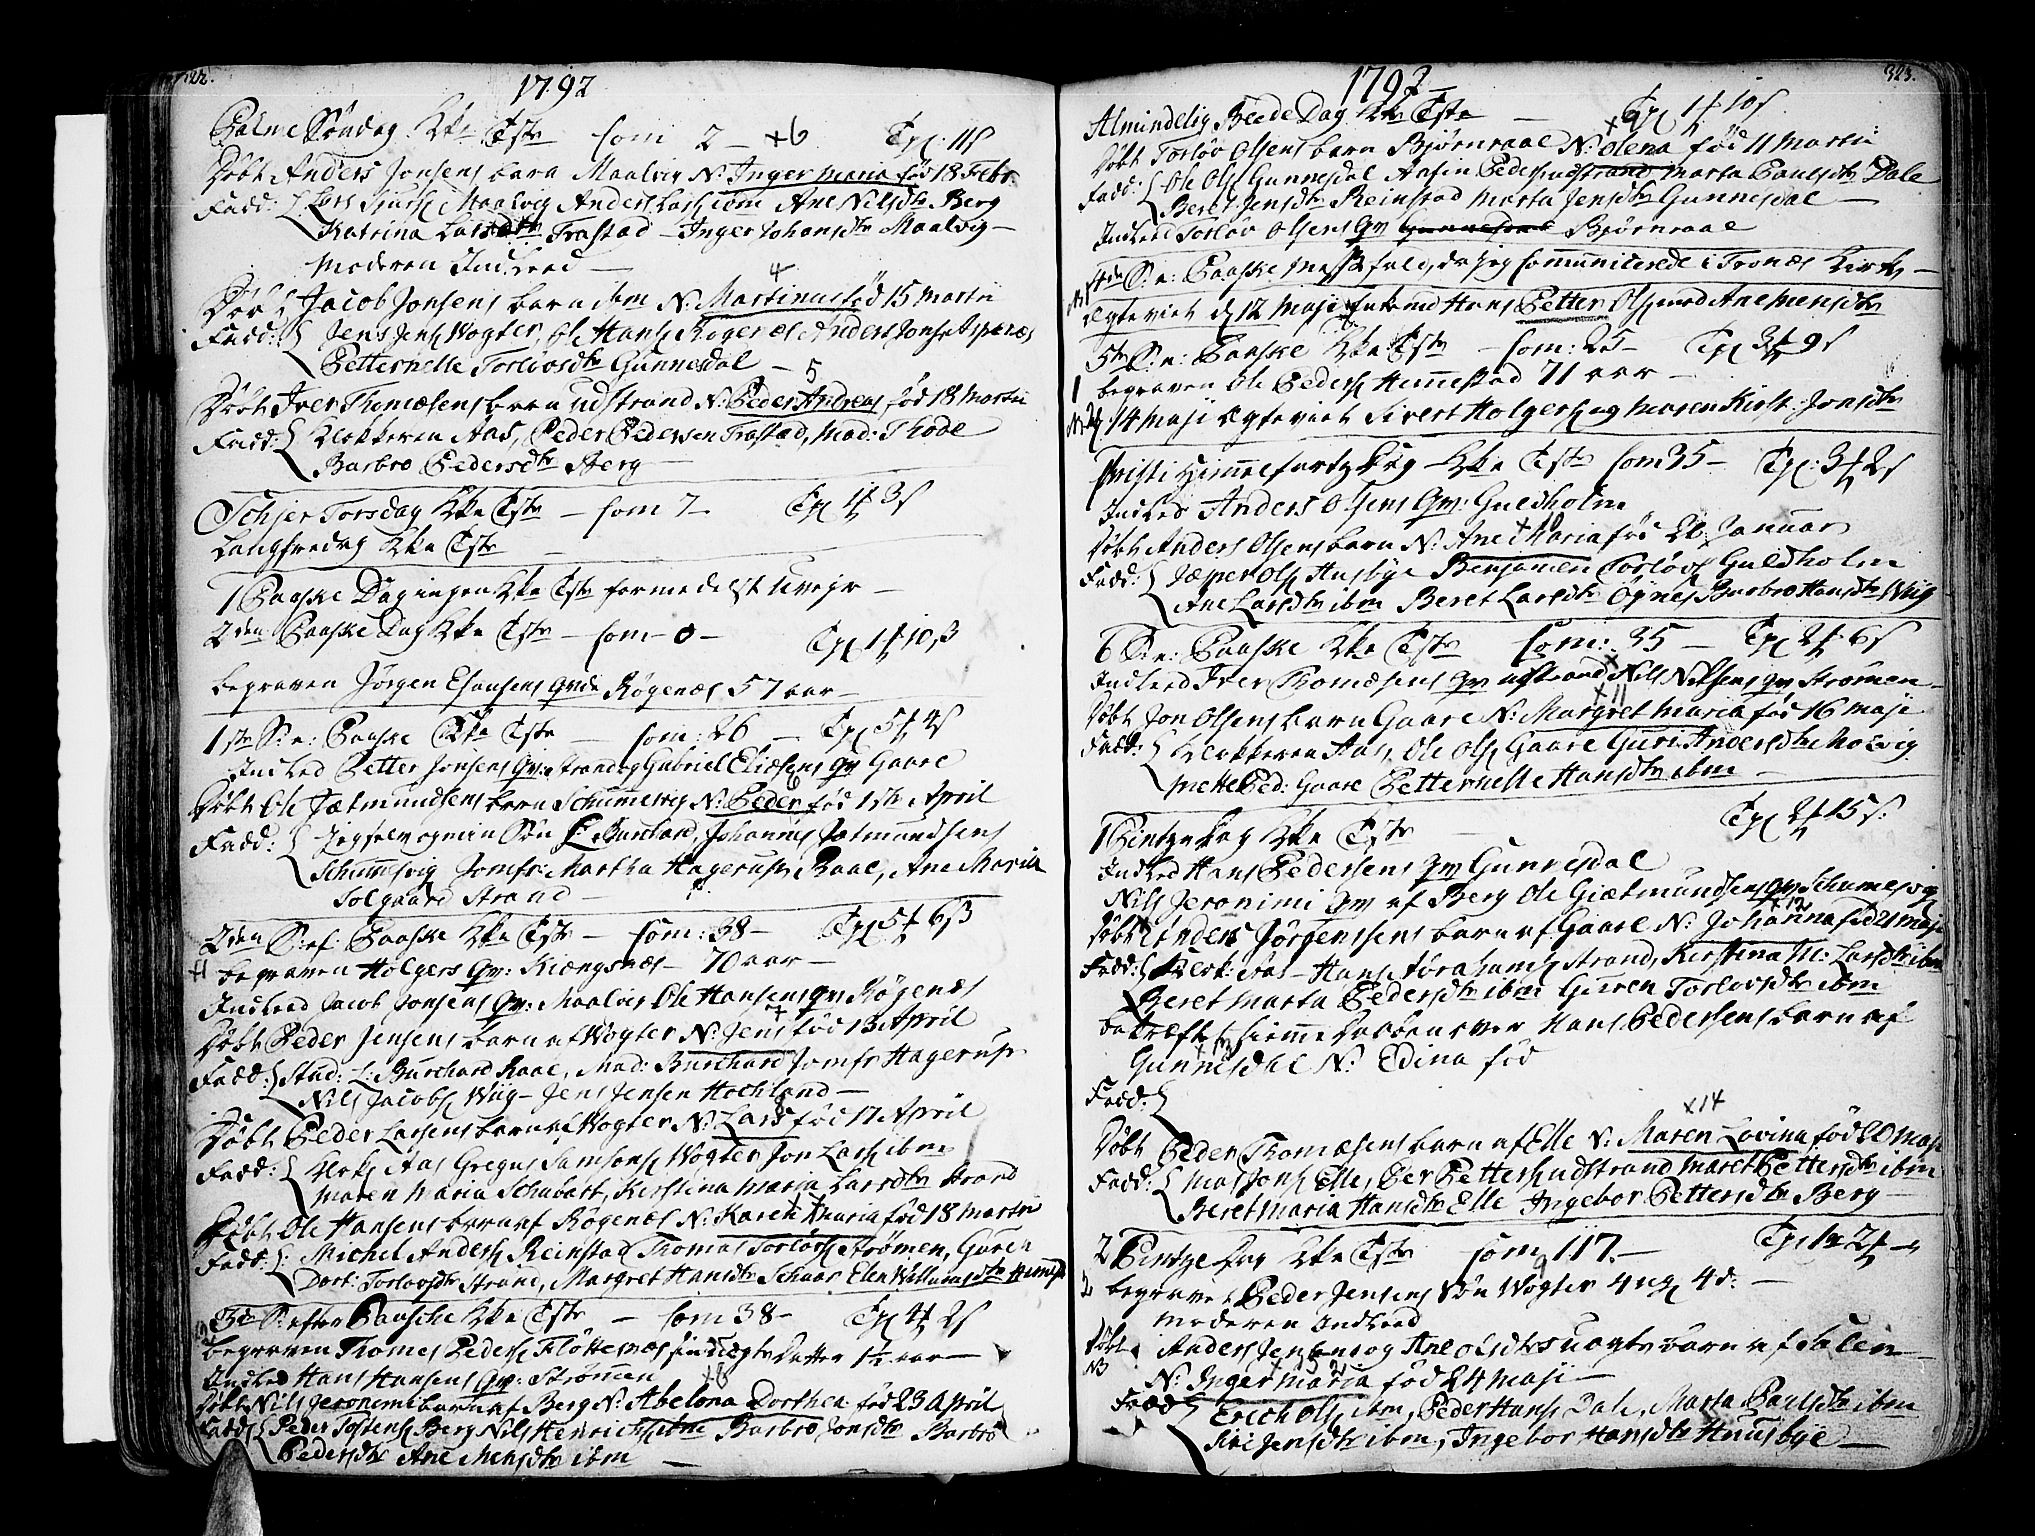 322.
1792
Palme Søndag Kke Tste com 2 - +6 Tvl 11 s
Døbt Anders Jonsens barn Maalvig N: Inger Maria fød 18 Febr:
Fadd: { Lars Maalvig Anders Lars: ibm Ane Nilsdtr Berg
Katrina Larsdtr Trastad - Inger Johansdtr Maalvig -
Moderen Indleed -
4
Døbt Jacob Jonsens barn ibm N: Martinus fød 15 Martii
Fadd: { Jens Jens: Wogter, Ole Hans: Røgenæs Anders Jons: Aspenæs
Petternelle Torløvsdtr Gunnesdal -
5
Døbt Iver Thomæsens barn udstrand N: Peder Andreas fød 18 Martii
Fadd: { Klokkeren Aas, Peder Pedersen Trastad, Mad: Thode
Barbro Pedersdtr Berg -
Schjer Torsdag Kke Tste - Com 7 - Tvl 1 3 s
Langfredag Kke Tste -
1 Paaske Dag ingen Kke Tste formedelst uvejr -
2den Paaske Dag Kke Tste - Com - 0 - Tvl 1 10 ß
begraven Jørgen Esausens Qvde Røgenæs 57 aar -
1ste S: e: Paaske Kke Tste - Com: 26 - Tvl 5 4 s
Indled Petter Jonsens Qv: strand og Gabriel Eliæsens Qv Gaare
6
Døbt Ole Jætmundsens barn Schumesvig N: Peder fød 1ste April
Fadd: { Jeg selv og min Søn L: Burchard, Johannes Jætmundsens
Schumesvig Jomfr: Martha Hagerup Raae, Ane Maria
Solgaard Strand -
2den S: ef: Paaske Kke Tste - Com: 38 - Tvl 5 6 ß
+1 begraven Holgers Qv: Kiængsnæs - 70 aar -
Indleed Jacob Jonsens Qv: Maalvig Ole Hansens Qv Røgenæs
Døbt Peder Jensens barn af Wogter N: Jens fød 13 April
Fadd: { Stud: L: Burchard Raae, Mad: Burchard Jomfr Hagerup
Nils Jacobs: Wiig - Jens Jensen Hochland -
8
Døbt Peder Larsens barn af Wogter N: Lars fød 17 April
Fadd: { Klok: Aas Gregus Samsons: Wogter Jon Lars: ibm
Maren Maria Schubart, Kirstina Maria Larsdtr Strand
Døbt Ole Hansens barn af Røgenæs N: Karen Maria fød 18 Martii
Fadd: { Michel Anders: Reinstad Thomas Torløvs: Strømen, Guren
Dort: Torlovsdtr Strand, Margret Hansdtr Schaar Elen Willumsdtr Hemst
3de S: efter Paasche Kke Tste - Com 38 - Tvl 4 2 s
begraven Thomes Peders: Fløttenæs Datter 1½ aar -
Indled Hans Hansens Qv: Strømen
Døbt Nils Jeronimi barn af Berg N: Abelona Dorthea fød 23 April
Fadd { Peder Tostens: Berg Nils Henrichs: ibm Barbro Jonsdtr Barbro
Pedersdtr Ane Mensdtr ibm -
323.
1792 -
Almindelig Beede Dag Kke Tste - Tvl 1 10 s
Døbt Torløv Olsens barn Bjørnraae N: Olena fød 11 Martii
Fadd: { Ole Ols: Gunnesdal Aasin Peders: udstrand Marta Paulsdtr Dale
Beret Jensdtr Reinstad Marta Jensdtr Gunnesdal -
Indleed Torløv Olsens Qv Bjørnraae
4de S: e: Paaske Messefald, da jeg Communicerede i Tronæs Kirke -
Ægteviet d 12 Maji Enkemd Hans Petter Ols: med Ane Mensdtr
5te S: e: Paaske Kke Tste - Com: 25 - Tvl 3 9 s
1 begraven Ole Peders: Hemestad 71 aar -
14 Maji Ægteviet Sivert Holgers: og Maren Kirst: Jonsdtr
Christi Himmelfartz Dag - Kke Tste Com 35 - Tvl: 3 2 s
Indled Anders Olsens Qv: Guldholm
+10
Døbt Anders Olsens barn N: Ane Maria fød Januar
Fadd: { Jæsper Ols: Husbye Benjamen Torløvs Guldholm
Ane Larsdtr ibm Beret Larsdtr Øynes Barbro Hansdtr Wiig
6 S: e: Paaske Kke Tste Com: 35 - Tvl 2 6 s
Indleed Iver Thomæsens Qv udstrand Nils Nilsens Qv Strømen -
+11
Døbt Jon Olsens barn Gaare N: Margret Maria fød 16 Maji
Fad: { Klokkeren Aas, Ole Ols: Gaare Guri Andersdtr Molvig
Mette Ped: Gaare Petternelle Hansdtr ibm -
1 Pintze Dag Kke Tste - Tvl 2 15 s:
Indleed Hans Pedersens Qv Gunnesdal
Nils Jeronimi Qv af Berg Ole Giætmundsens Qv Schumesvig
+12
Døbt Anders Jørgensens barn af Gaare N: Johanna fød 21 Maji
Fadd: { Klok: Aas - Hans Abrahams: Strand, Kirstina M: Larsdtr ibm
Beret Marta Pedersdtr ibm Guren Torlovsdtr ibm
Bekræft: hiemme Daaben over Hans Pedersens barn af
Gunnesdal N: Edina fød
Fadd: {
+14
Døbt Peder Thomæsens barn af Elle N: Maren Lovina fød 20 Maji
Fadd: { Mas Jons: Elle, Per Petters: udstrand Maret Pettersdtr ibm
Beret Maria Hansdtr Elle Ingebor Pettersdtr Berg -
2 Pintze Dag Kke Tste Com 117. - Tvl 2 -
2 begravet Peder Jensens Søn Wogter 4 ug: 4 d: -
Moderen Indleed
Døbt Anders Jensen og Ane Olsdtrs uægte barn af Elen -
NB N: Inger Maria fød 24 Maji -
Fadd { Erich Ols: ibm, Peder Hans: Dale, Marta Paulsdtr ibm
Siri Jensdtr ibm, Ingebor Hansdtr Husbye -